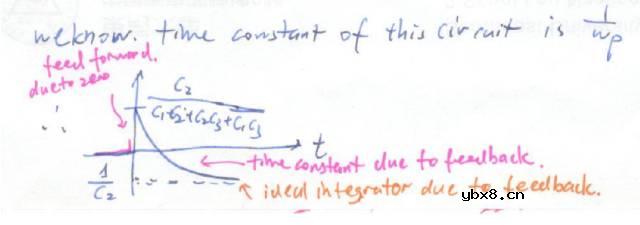 we know. time constant of this circuit is 1/wp
feed forward.
due to zero
∴
C2
C1C2+C2C3+C1C3
t
time constant due to feedback.
1/C2
ideal integrator due to feedback.
ybx8.cn